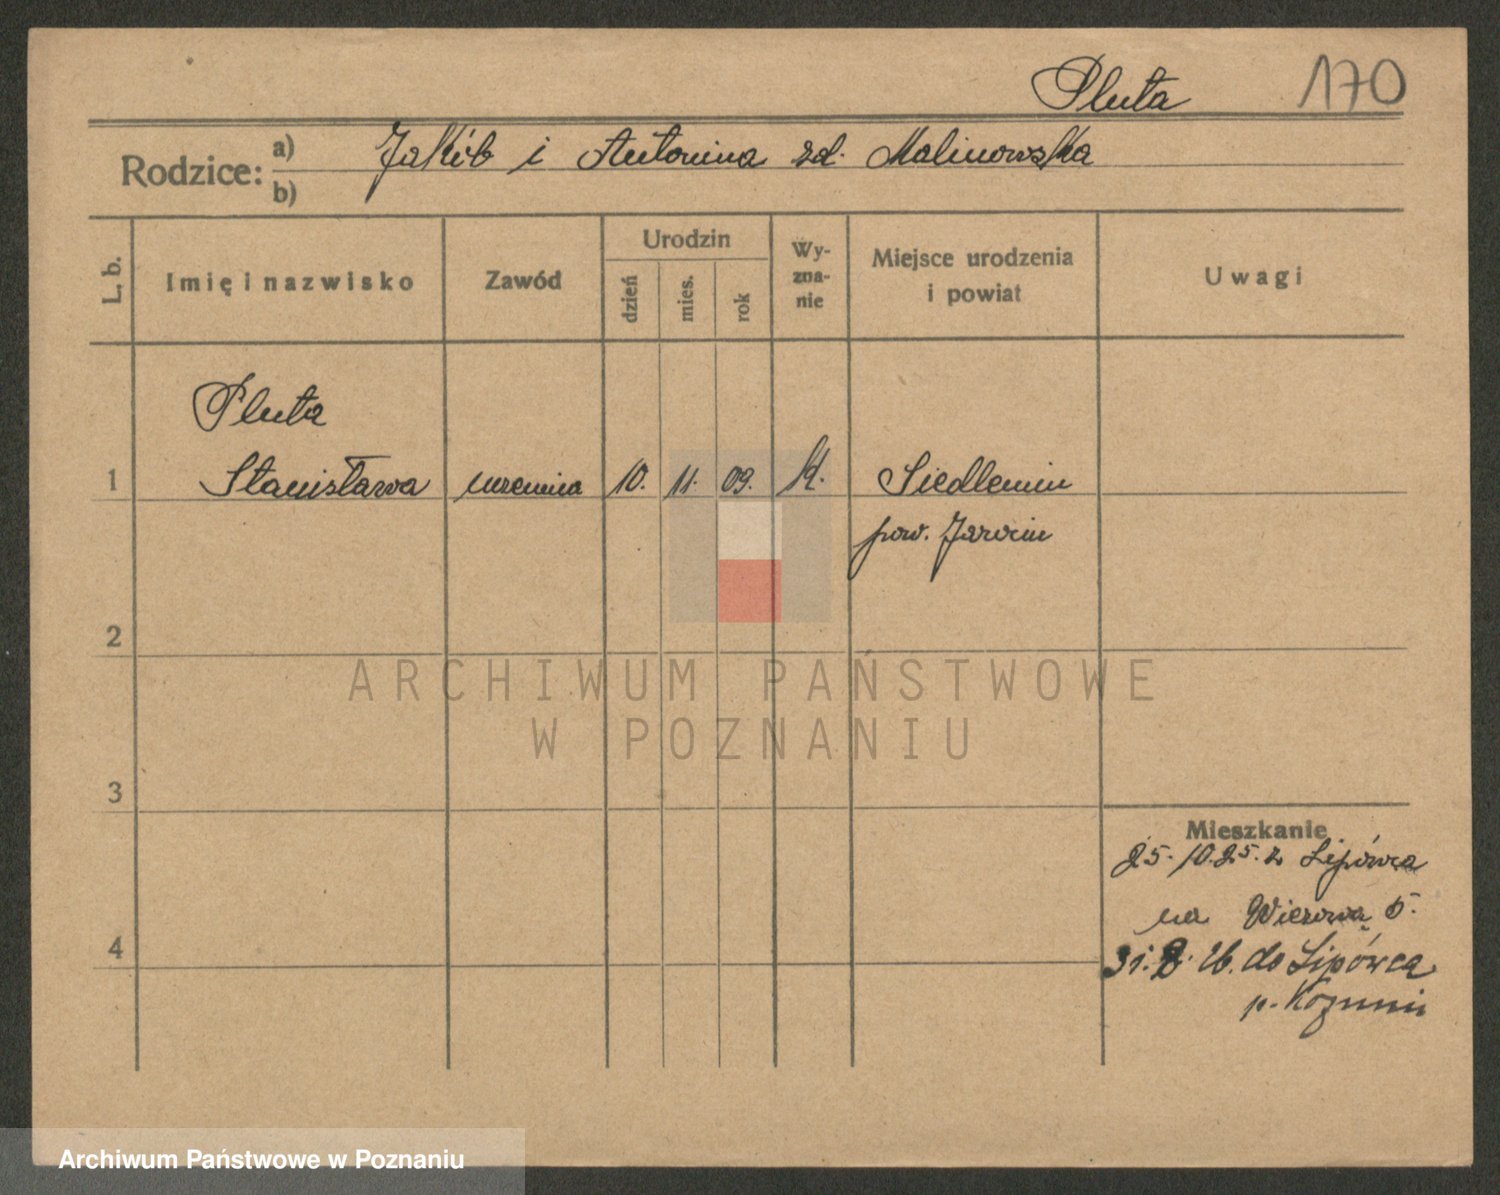 Pluta 170
Rodzice: a) Jakób i Antonina zd. Malinowska
b)
L. b. Imię i nazwisko Zawód Urodzin dzień mies. rok Wy-zna-nie Miejsce urodzenia i powiat Uwagi
Pluta
1 Stanisława uczennica 10. 11. 09. kt. Siedlemin
pow. Jarocin
2
3
4
Mieszkanie
25. 10. 25. z Lipówca
na Wiezową 5.
31. 8. 26. do Lipówca
p. Kozmin
ARCHIWUM PAŃSTWOWE
W POZNANIU
Archiwum Państwowe w Poznaniu